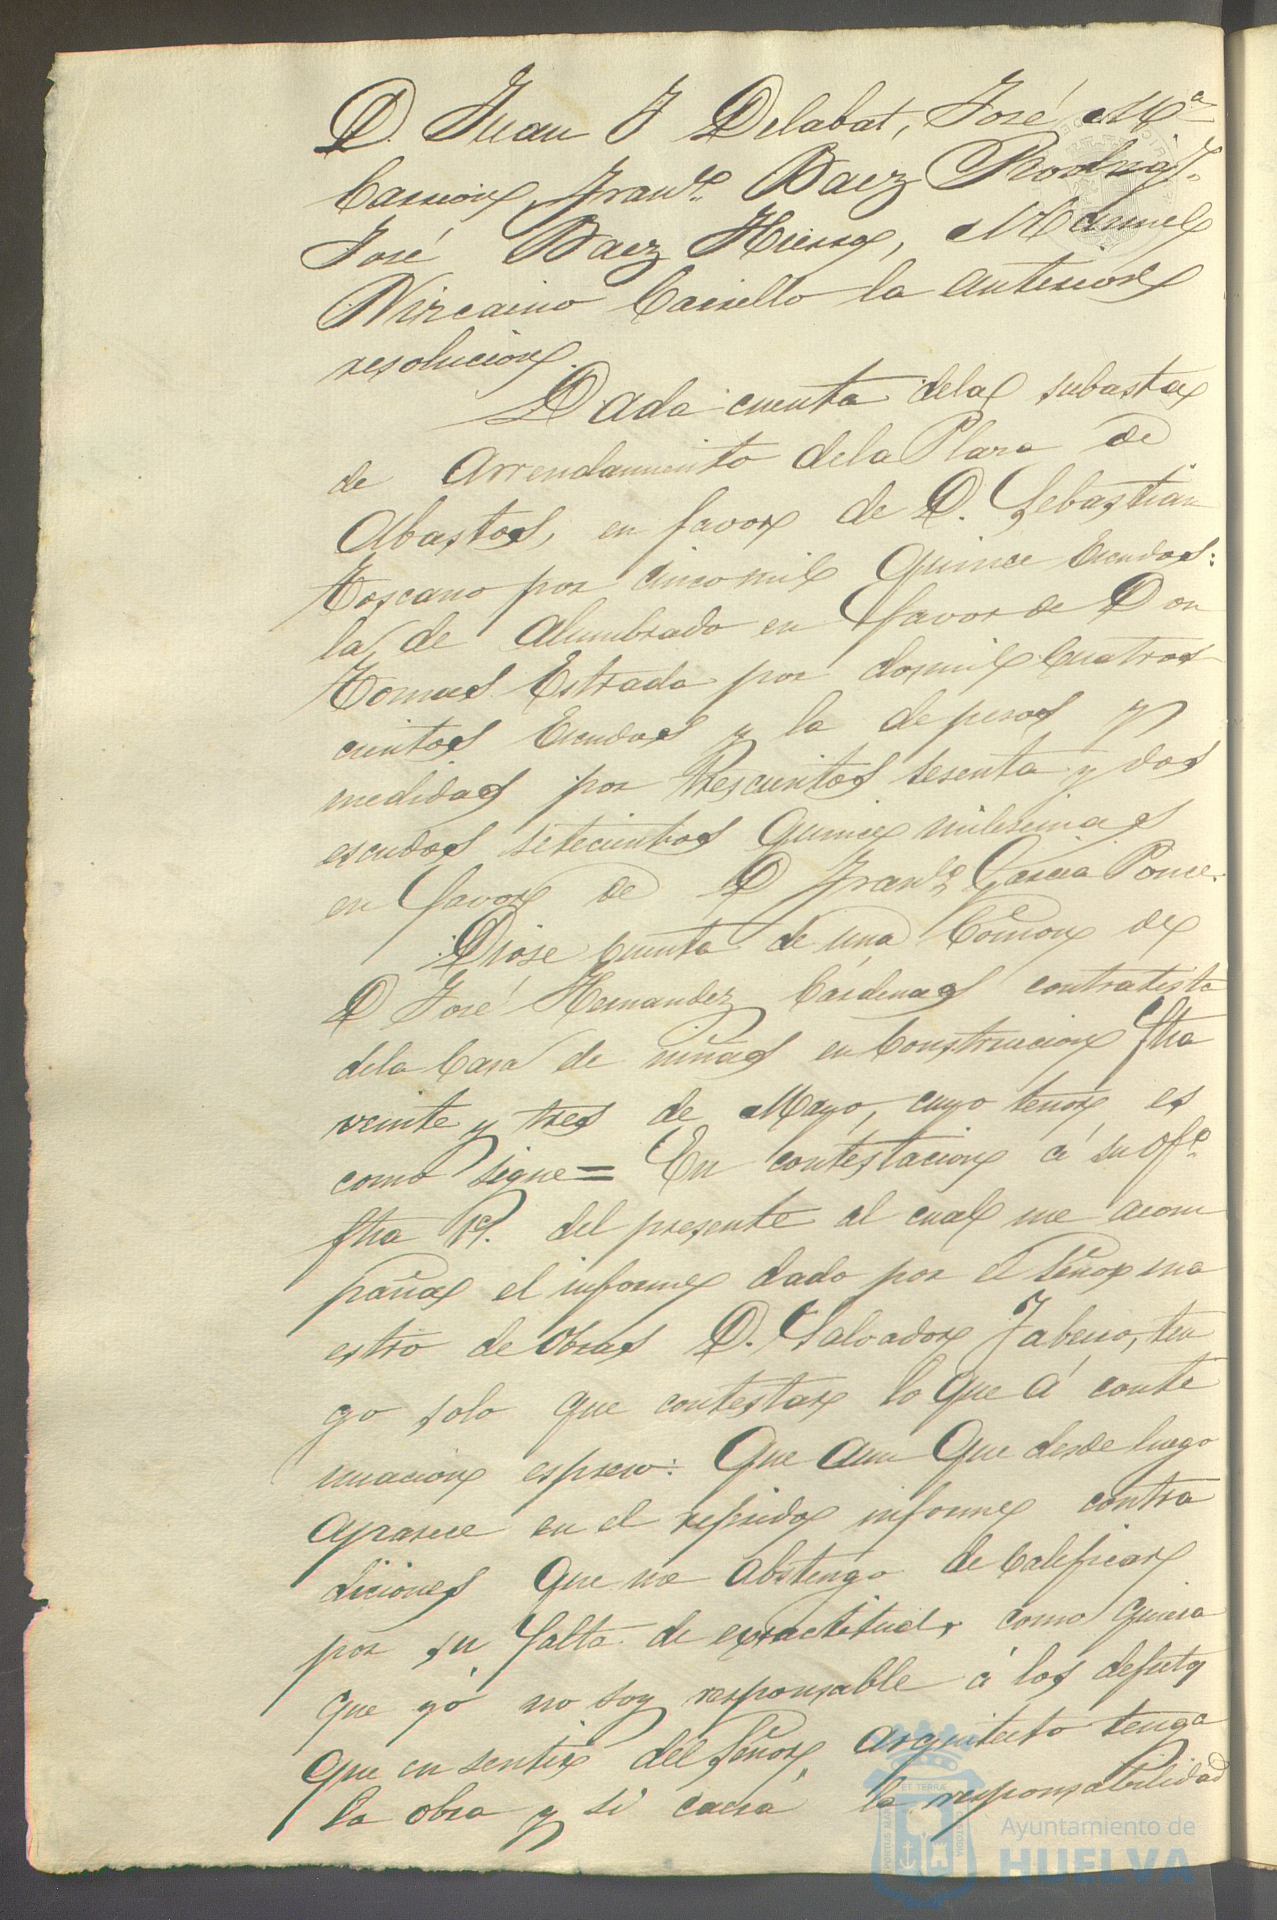 D. Juan J Delabat, José Mª
Carrion, Franco. Baez Rodrigz.
José Baez Hierro, Manuel
Vizcaino Carrillo la anterior
resolucion.
Dada cuenta dela subasta
de arrendamiento dela Plaza de
Abastos, en favor de D. Sebastian
Toscano por cinco mil quince Escudos:
la de alumbrado en favor de Don
Tomas Estrada por dosmil cuatros
cientos Escudos y la de pesos y
medidas por trescientos sesenta y dos
escudos setecientos quince milesimas
en favor de D Franco. Garcia Ponce.
Diose cuenta de una Comon de
D José Hernandez Cárdenas contratista
dela Casa de niñas en construccion fha
veinte y tres de Mayo, cuyo tenor es
como sigue = En contestacion á su Ofo.
fha 19. del presente al cual me acom
paña el informe dado por el Señor ma
estro de Obras D. Salvador Jabero, ten
go solo que contestar lo que á conti
nuacion espreso: Que aun que desde luego
aparece en el referido informe contra
diciones que me abstengo de calificar
por su falta de exsactitud, como quiera
que yó no soy responsable á los defectos
que en sentir del Señor Arquitecto tenga
la obra y si caera la responsabilidad
PORTUS MARIS ET TERRAE CUSTODIA
Ayuntamiento de
HUELVA